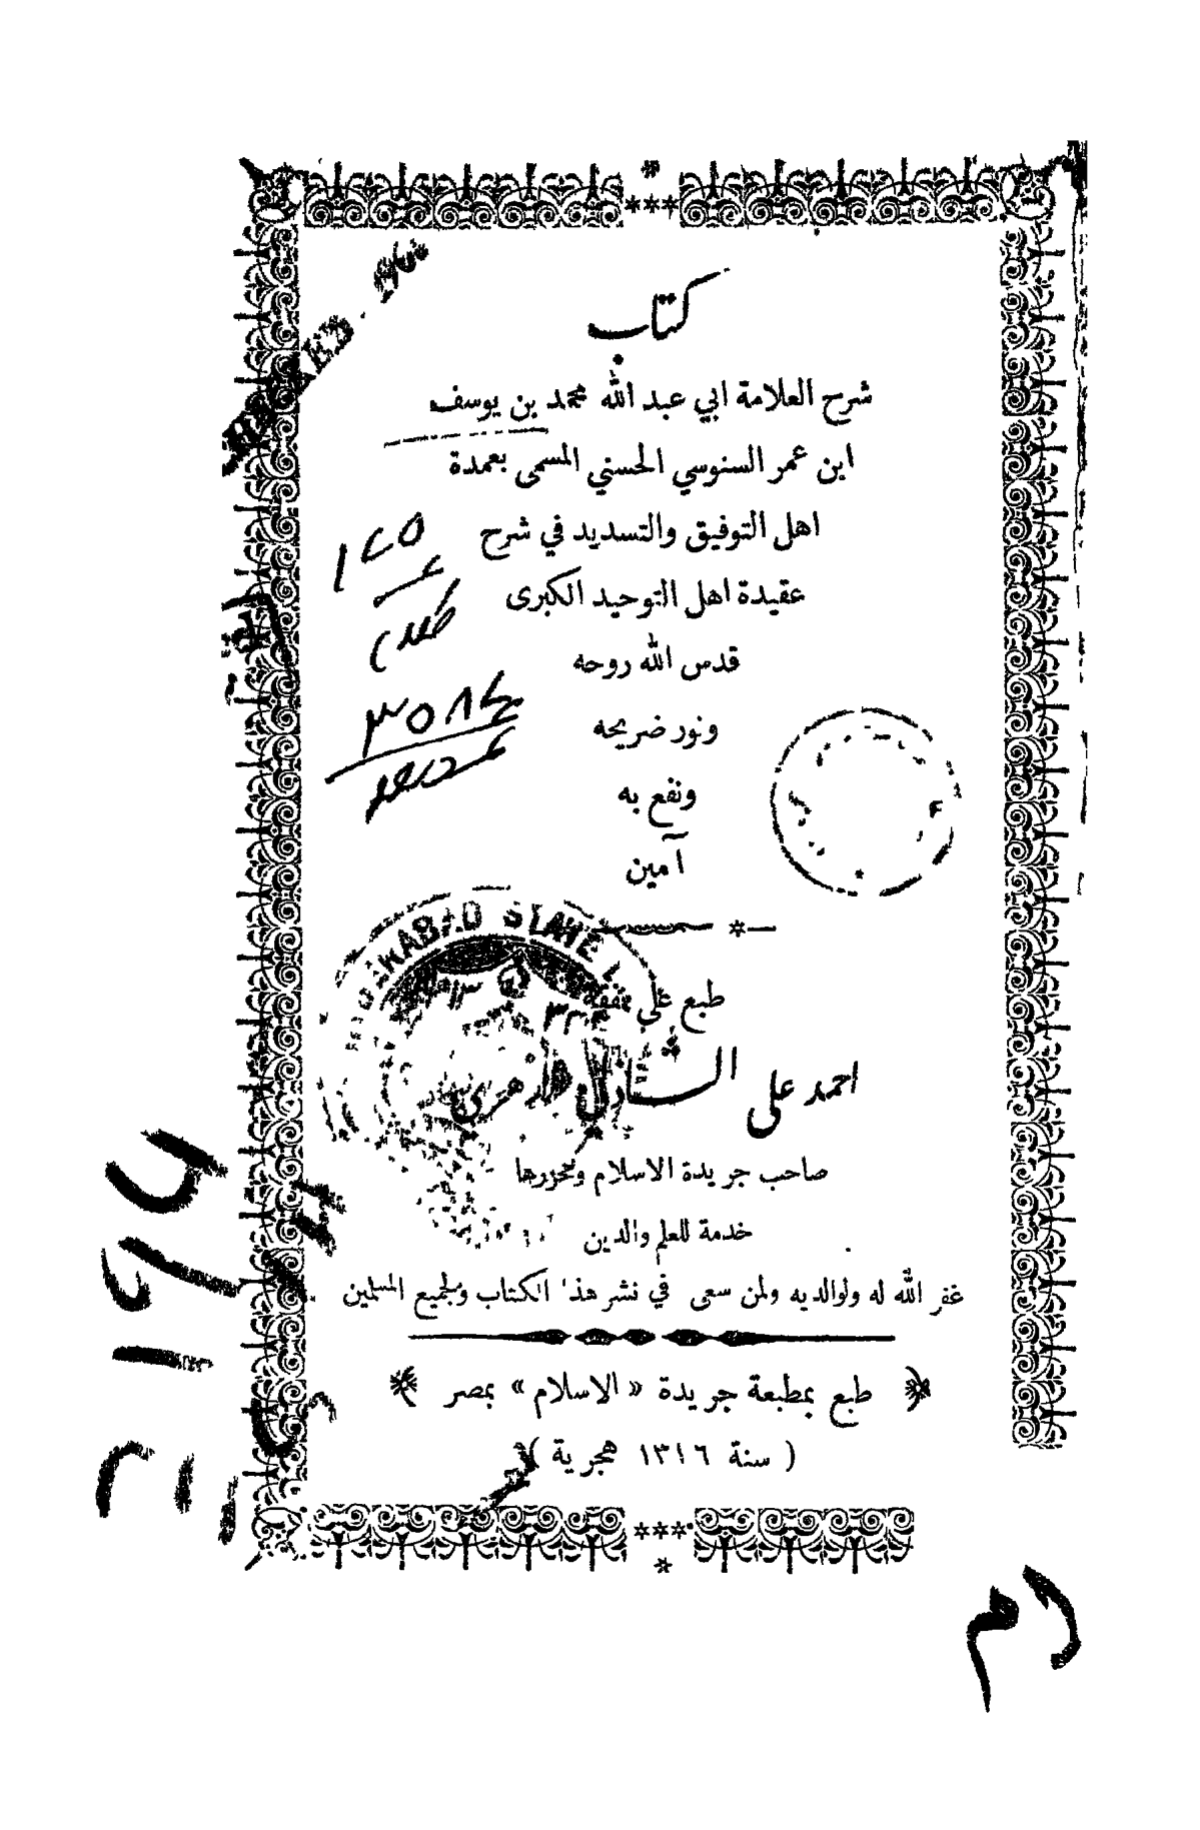 كتاب
شرح العلامة ابي عبد الله محمد بن يوسف
ابن عمر السنوسي الحسني المسمى بعمدة
اهل التوفيق والتسديد في شرح
عقيدة اهل التوحيد الكبرى
قدس الله روحه
ونور ضريحه
ونفع به
آمين
١٢٥
٣٥٨٢
طبع على نفقة
احمد على الشاذلى الازهرى
صاحب جريدة الاسلام ومحررها
خدمة للعلم والدين
غفر الله له ولوالديه ولمن سعى في نشر هذا الكتاب ولجميع المسلمين
طبع بمطبعة جريدة «الاسلام» بمصر
( سنة ١٣١٦ هجرية )